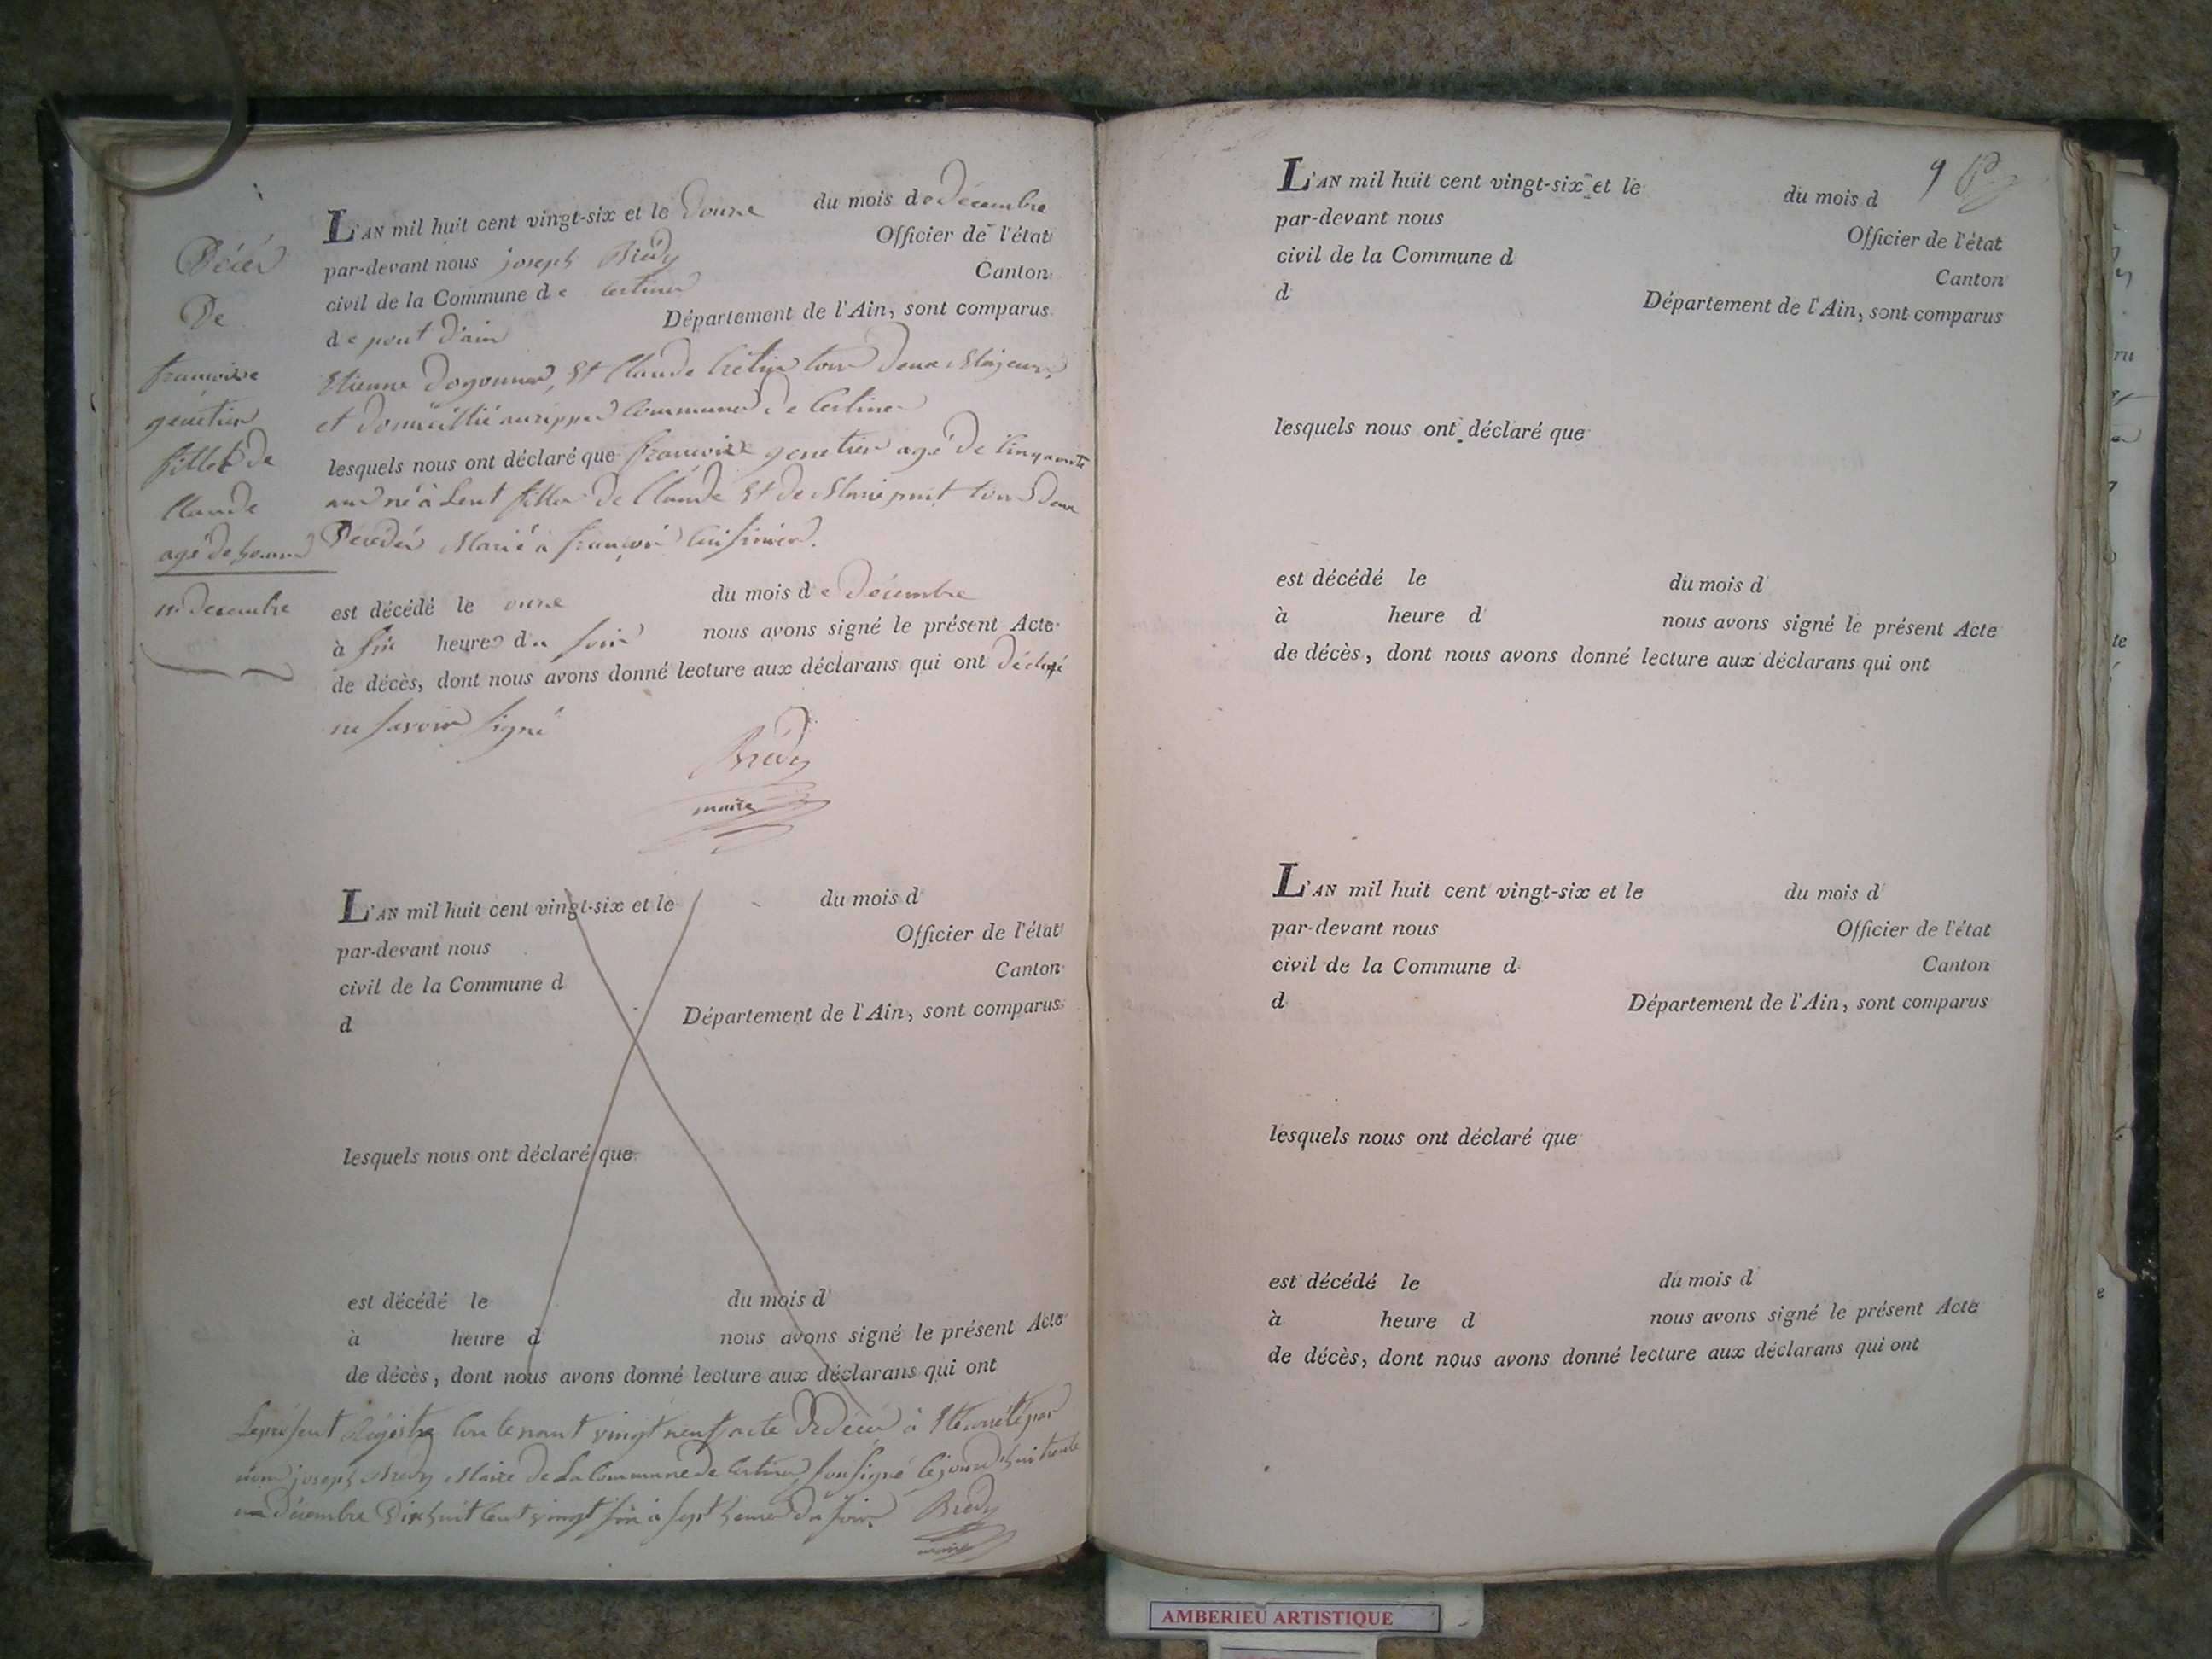 Décès
De
francoise
genetier
fille de
Claude
agé de
11 decembre
L'AN mil huit cent vingt-six et le Douze du mois de Décembre
par-devant nous joseph Brédy Officier de l'état
civil de la Commune de Certines Canton
de pont D'ain Département de l'Ain, sont comparus
Etienne dogonnet, Et Claude Crétin tous Deux Majeurs,
et Domicillié Commune de Certines
lesquels nous ont déclaré que francoise genetier agé de Cinquante
ans né à Lent fille de Claude Et de Marie tous Deux
Décédés Marié à françois Cuisinier.
est décédé le onze du mois de Décembre
à six heures du soir nous avons signé le présent Acte
de décès, dont nous avons donné lecture aux déclarans qui ont Déclaré
ne savoir signé
Brédy
maire
L'AN mil huit cent vingt-six et le du mois d
par-devant nous Officier de l'état
civil de la Commune d Canton
d Département de l'Ain, sont comparus
lesquels nous ont déclaré que
est décédé le du mois d
à heure d nous avons signé le présent Acte
de décès, dont nous avons donné lecture aux déclarans qui ont
Le présent Régistre Contenant vingt neuf acte De décès à Eté arrété par
nous joseph Brédy Maire de La Commune de Certines soussigné Cejourd'hui trente
un Décembre Dix huit Cent vingt six à sept heures du soir Brédy
maire
9
L'AN mil huit cent vingt-six et le du mois d
par-devant nous Officier de l'état
civil de la Commune d Canton
d Département de l'Ain, sont comparus
lesquels nous ont déclaré que
est décédé le du mois d
à heure d nous avons signé le présent Acte
de décès, dont nous avons donné lecture aux déclarans qui ont
L'AN mil huit cent vingt-six et le du mois d
par-devant nous Officier de l'état
civil de la Commune d Canton
d Département de l'Ain, sont comparus
lesquels nous ont déclaré que
est décédé le du mois d
à heure d nous avons signé le présent Acte
de décès, dont nous avons donné lecture aux déclarans qui ont
AMBERIEU ARTISTIQUE